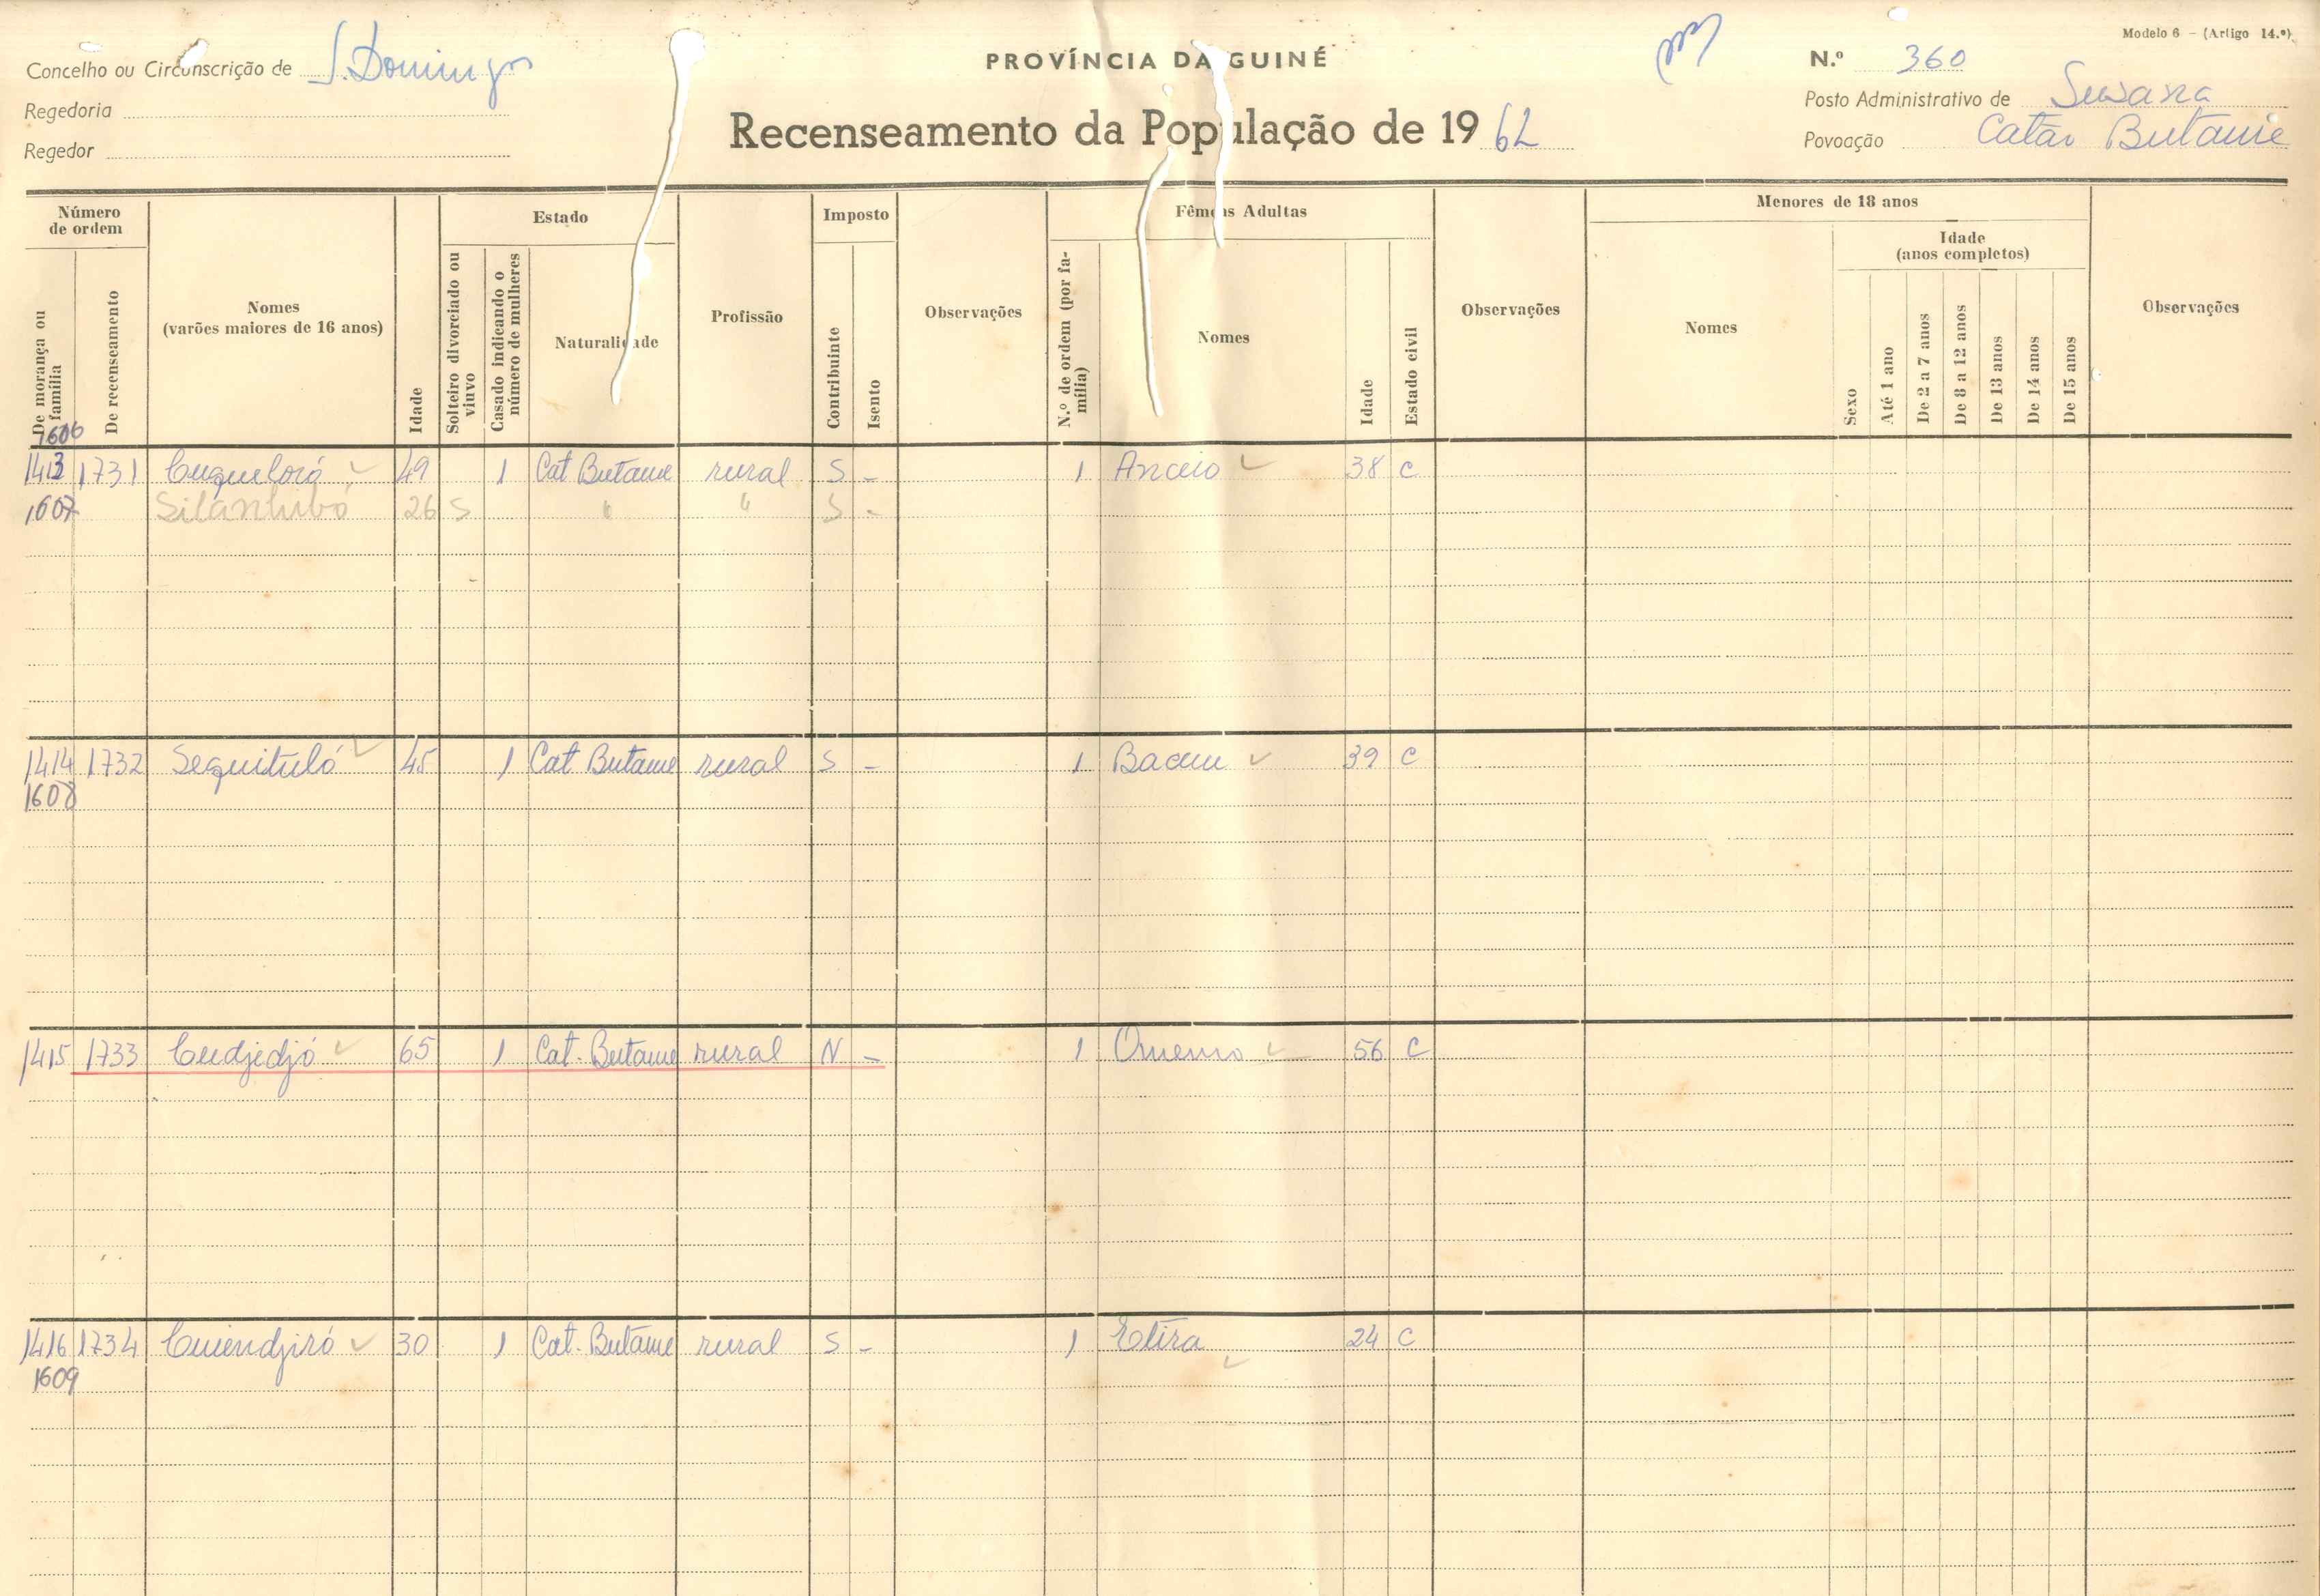 Modelo 6 – (Artigo 14.º)
Concelho ou Circunscrição de S. Domingos
PROVÍNCIA DA GUINÉ
N.º 360
Regedoria
Posto Administrativo de Susana
Regedor
Recenseamento da População de 1962
Povoação Catão Butame
Número de ordem
Estado
Imposto
Fêmeas Adultas
Menores de 18 anos
Idade (anos completos)
De morança ou família
De recenseamento
Nomes (varões maiores de 16 anos)
Idade
Solteiro divorciado ou viuvo
Casado indicando o número de mulheres
Naturalidade
Profissão
Contribuinte
Isento
Observações
N.º de ordem (por família)
Nomes
Idade
Estado civil
Observações
Nomes
Sexo
Até 1 ano
De 2 a 7 anos
De 8 a 12 anos
De 13 anos
De 14 anos
De 15 anos
Observações
1606
1413 1731 49 1 Cat Butame rural S - 1 38 C
1607 26 S " " S -
1414 1732 Sequituló 45 1 Cat Butame rural S - 1 39 C
1608
1415 1733 Cudjedjó 65 1 Cat. Butame rural N - 1 56 C
1416 1734 Cuiendjiró 30 1 Cat. Butame rural S - 1 24 C
1609